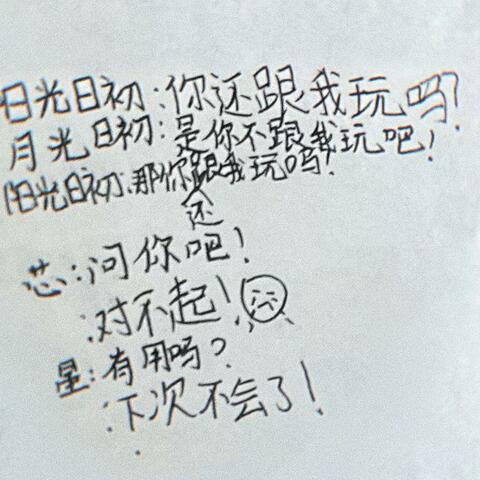 日光日初:你还跟我玩吗?
月光日初:是你不跟我玩吧!
阳光日初:那你还跟我玩吗!
芯:问你吧!
对不起!
星:有用吗?
下次不会了!